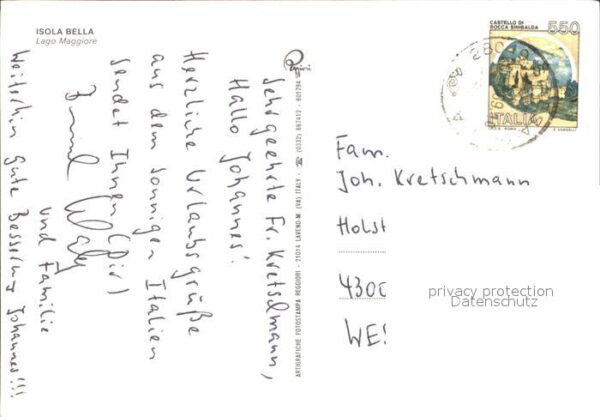 ISOLA BELLA
Lago Maggiore
Sehr geehrte Fr. Kretschmann,
Hallo Johannes!
Herzliche Urlaubsgrüße
aus dem sonnigen Italien
sendet Ihnen (Dir)
und Familie
Weiterhin gute Besserung Johannes!!!
ARTIGRAFICHE FOTOSTAMPA REGGIORI - 21014 LAVENO-M (VA) ITALY - ☎ (0332) 667412 - 601294
CASTELLO DI
ROCCA SINIBALDA
550
ITALIA
Fam.
Joh. Kretschmann
Holst
4300
WES
privacy protection
Datenschutz